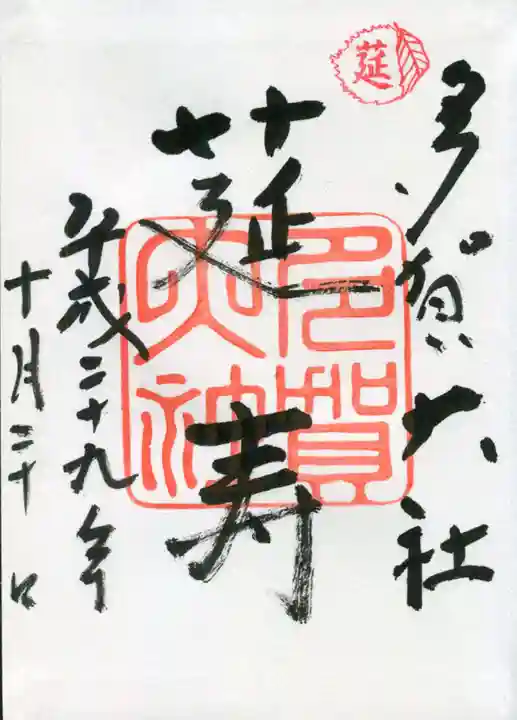 莚
多賀大社
莚寿
多賀
大神
平成二十九年
十月二十日